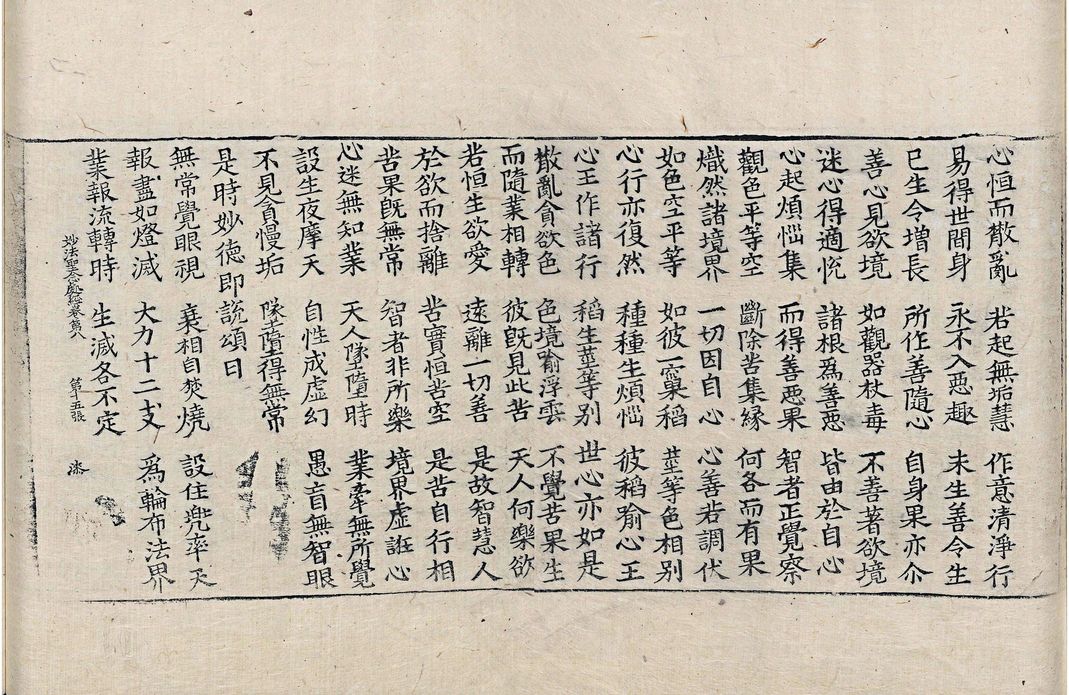 心恒而散亂 若起無垢慧 作意清淨行
易得世間身 永不入惡趣 未生善令生
已生令增長 所作善隨心 自身果亦尒
善心見欲境 如觀器杖毒 不善著欲境
迷心得適悅 諸根為善惡 皆由於自心
心起煩惱集 而得善惡果 智者正覺察
觀色平等空 斷除苦集緣 何各而有果
熾然諸境界 一切因自心 心善若調伏
如色空平等 如彼一窠稻 莖等色相別
心行亦復然 種種生煩惱 彼稻喻心王
心王作諸行 稻生莖等別 世心亦如是
散亂貪欲色 色境喻浮雲 不覺苦果生
而隨業相轉 彼旣見此苦 天人何樂欲
若恒生欲愛 遠離一切善 是故智慧人
於欲而捨離 苦實恒苦空 是苦自行相
苦果旣無常 智者非所樂 境界虛誑心
心迷無知業 天人墜墮時 業牽無所覺
設生夜摩天 自性成虛幻 愚盲無智眼
不見貪慢垢 墜墮得無常
是時妙德即說頌曰
無常覺眼視 衰相自焚燒 設住兜率天
報盡如燈滅 大力十二支 爲輪布法界
業報流轉時 生滅各不定
妙法聖念處經卷第八 第十五張 漆